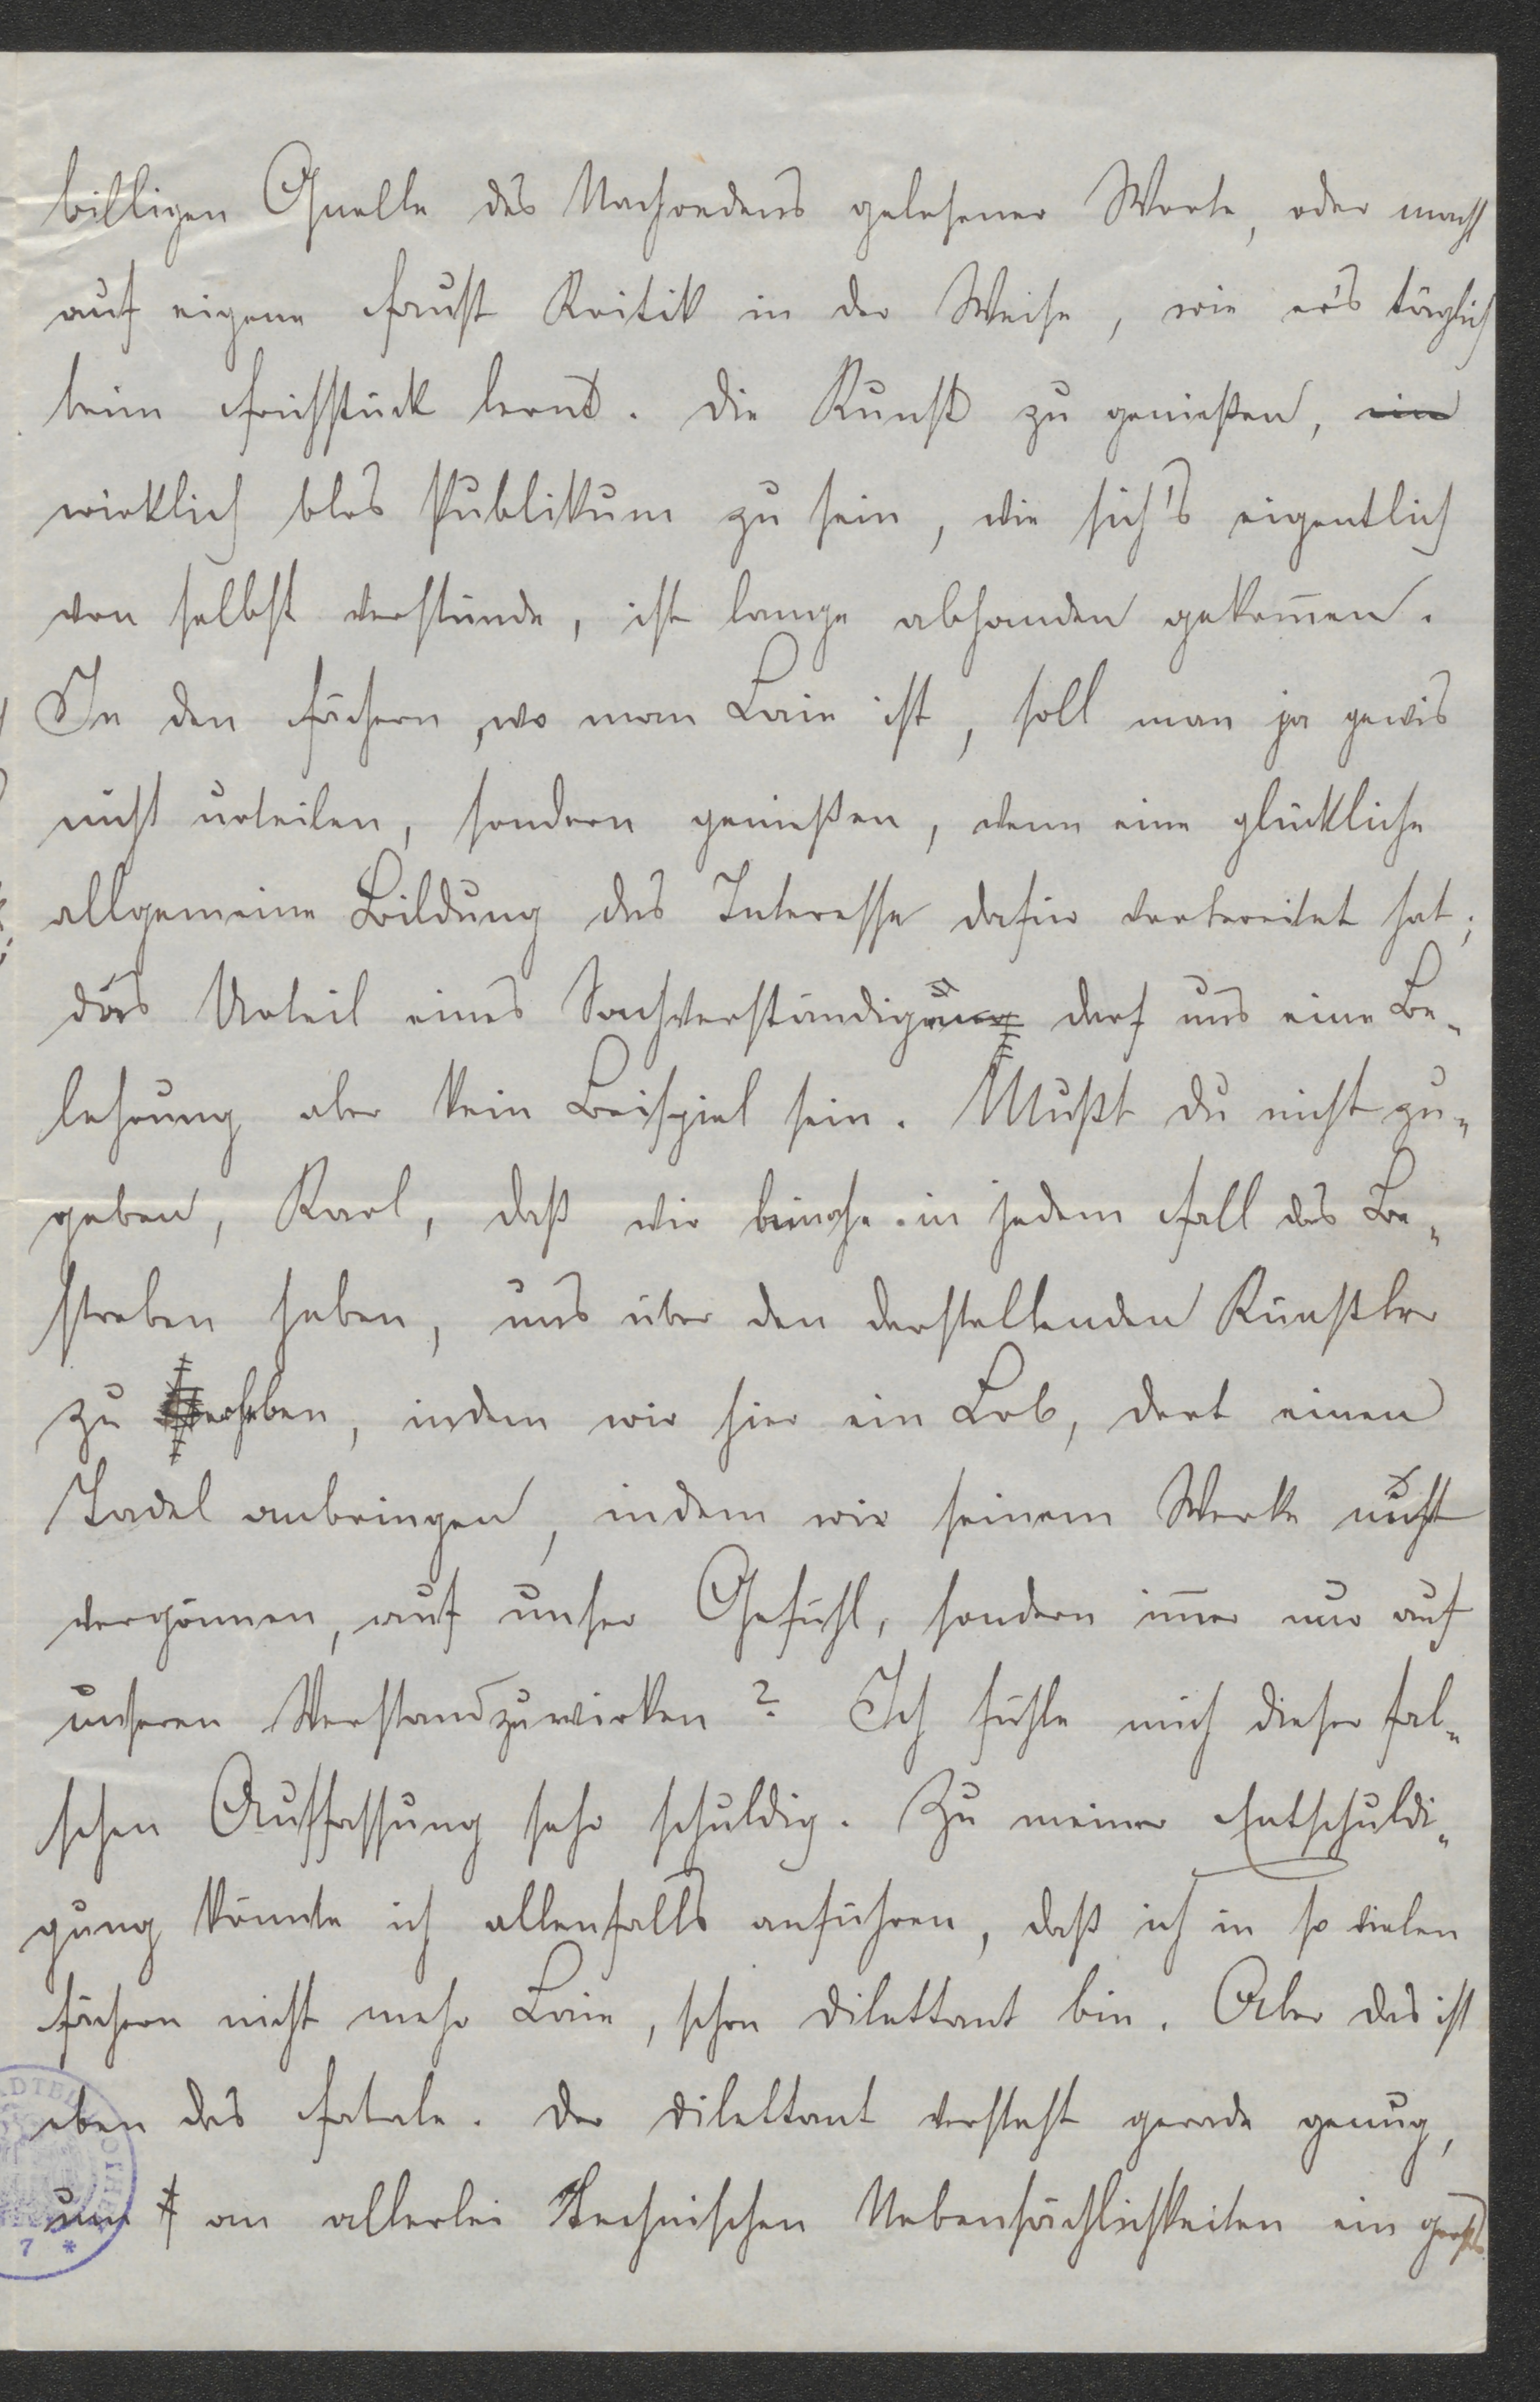 billigen Quelle des Nachredens gelesener Worte, oder macht
auf eigene Faust Kritik in der Weise, wie er's täglich
beim Frühstück lernt. Die Kunst zu genießen, ein
wirklich blos Publikum zu sein, wie sich's eigentlich
von selbst verstünde, ist lange abhanden gekom̄en.
In den Fächern, wo man Laie ist, soll man ja gewis
nicht urteilen, sondern genießen, wenn eine glückliche
allgemeine Bildung das Interesse dafür vorbereitet hat;
das Urteil eines Sachverständigen darf uns eine Be-
lehrung aber kein Beispiel sein. Mußt du nicht zu-
geben, Karl, daß wir beinahe in jedem Fall das Be-
streben haben, uns über den darstellenden Künstler
zu erheben, indem wir hier ein Lob, dort einen
Tadel anbringen, indem wir seinem Werke nicht
vergönnen, auf unser Gefühl, sondern im̄er nur auf
unseren Verstand zu wirken? Ich fühle mich dieser fal-
schen Auffassung sehr schuldig. Zu meiner Entschuldi-
gung könnte ich allenfalls anführen, daß ich in so vielen
Fächern nicht mehr Laie, schon Dilettant bin. Aber das ist
eben das Fatale. Der Dilettant versteht gerade genug,
um an allerlei technischen Nebensächlichkeiten ein
7 *